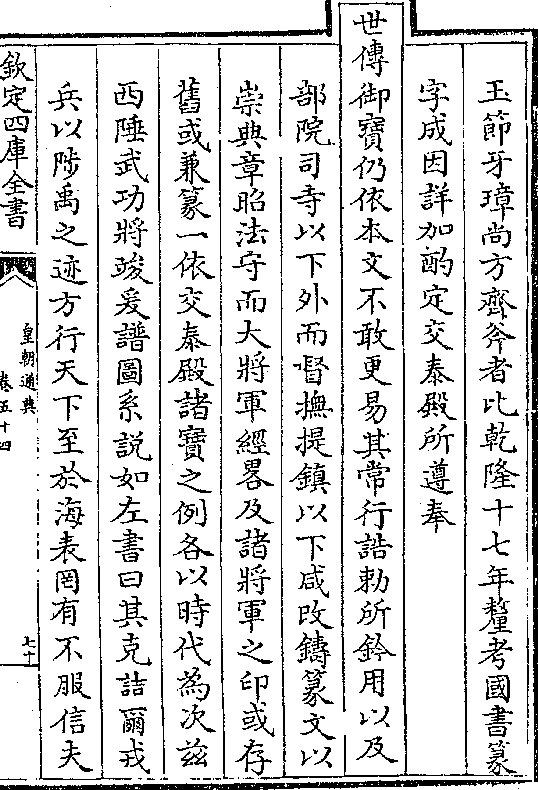 玉節牙璋尚方齊斧者比乾隆十七年釐考國書篆
字成因詳加酌定交泰殿所遵奉
世傳御寶仍依本文不敢更易其常行誥勅所鈐用以及
部院司寺以下外而督撫提鎮以下咸改鑄篆文以
崇典章昭法守而大將軍經畧及諸將軍之印或存
舊或兼篆一依交泰殿諸寶之例各以時代為次茲
西陲武功將竣爰譜圖系説如左書曰其克詰爾戎
兵以陟禹之迹方行天下至於海表罔有不服信夫
欽定四庫全書
皇朝通典
卷五十四
七十